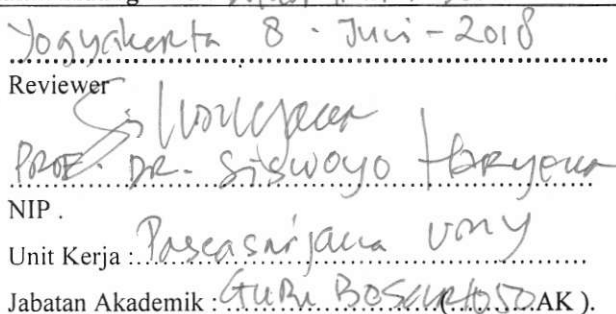 Yogyakarta 8 - Juni - 2018
Reviewer
PROF. DR. SISWOYO HARYONO
NIP .
Unit Kerja : Pascasarjana UMY
Jabatan Akademik : GURU BESAR (1050 AK ).